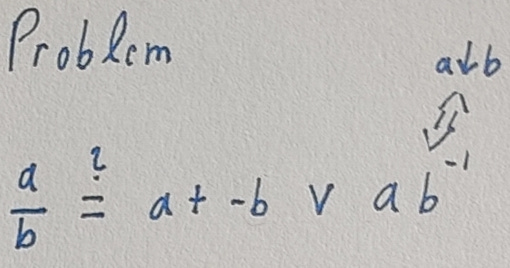 Problem
a↓b
⇕
a/b ≟ a + -b ∨ ab⁻¹